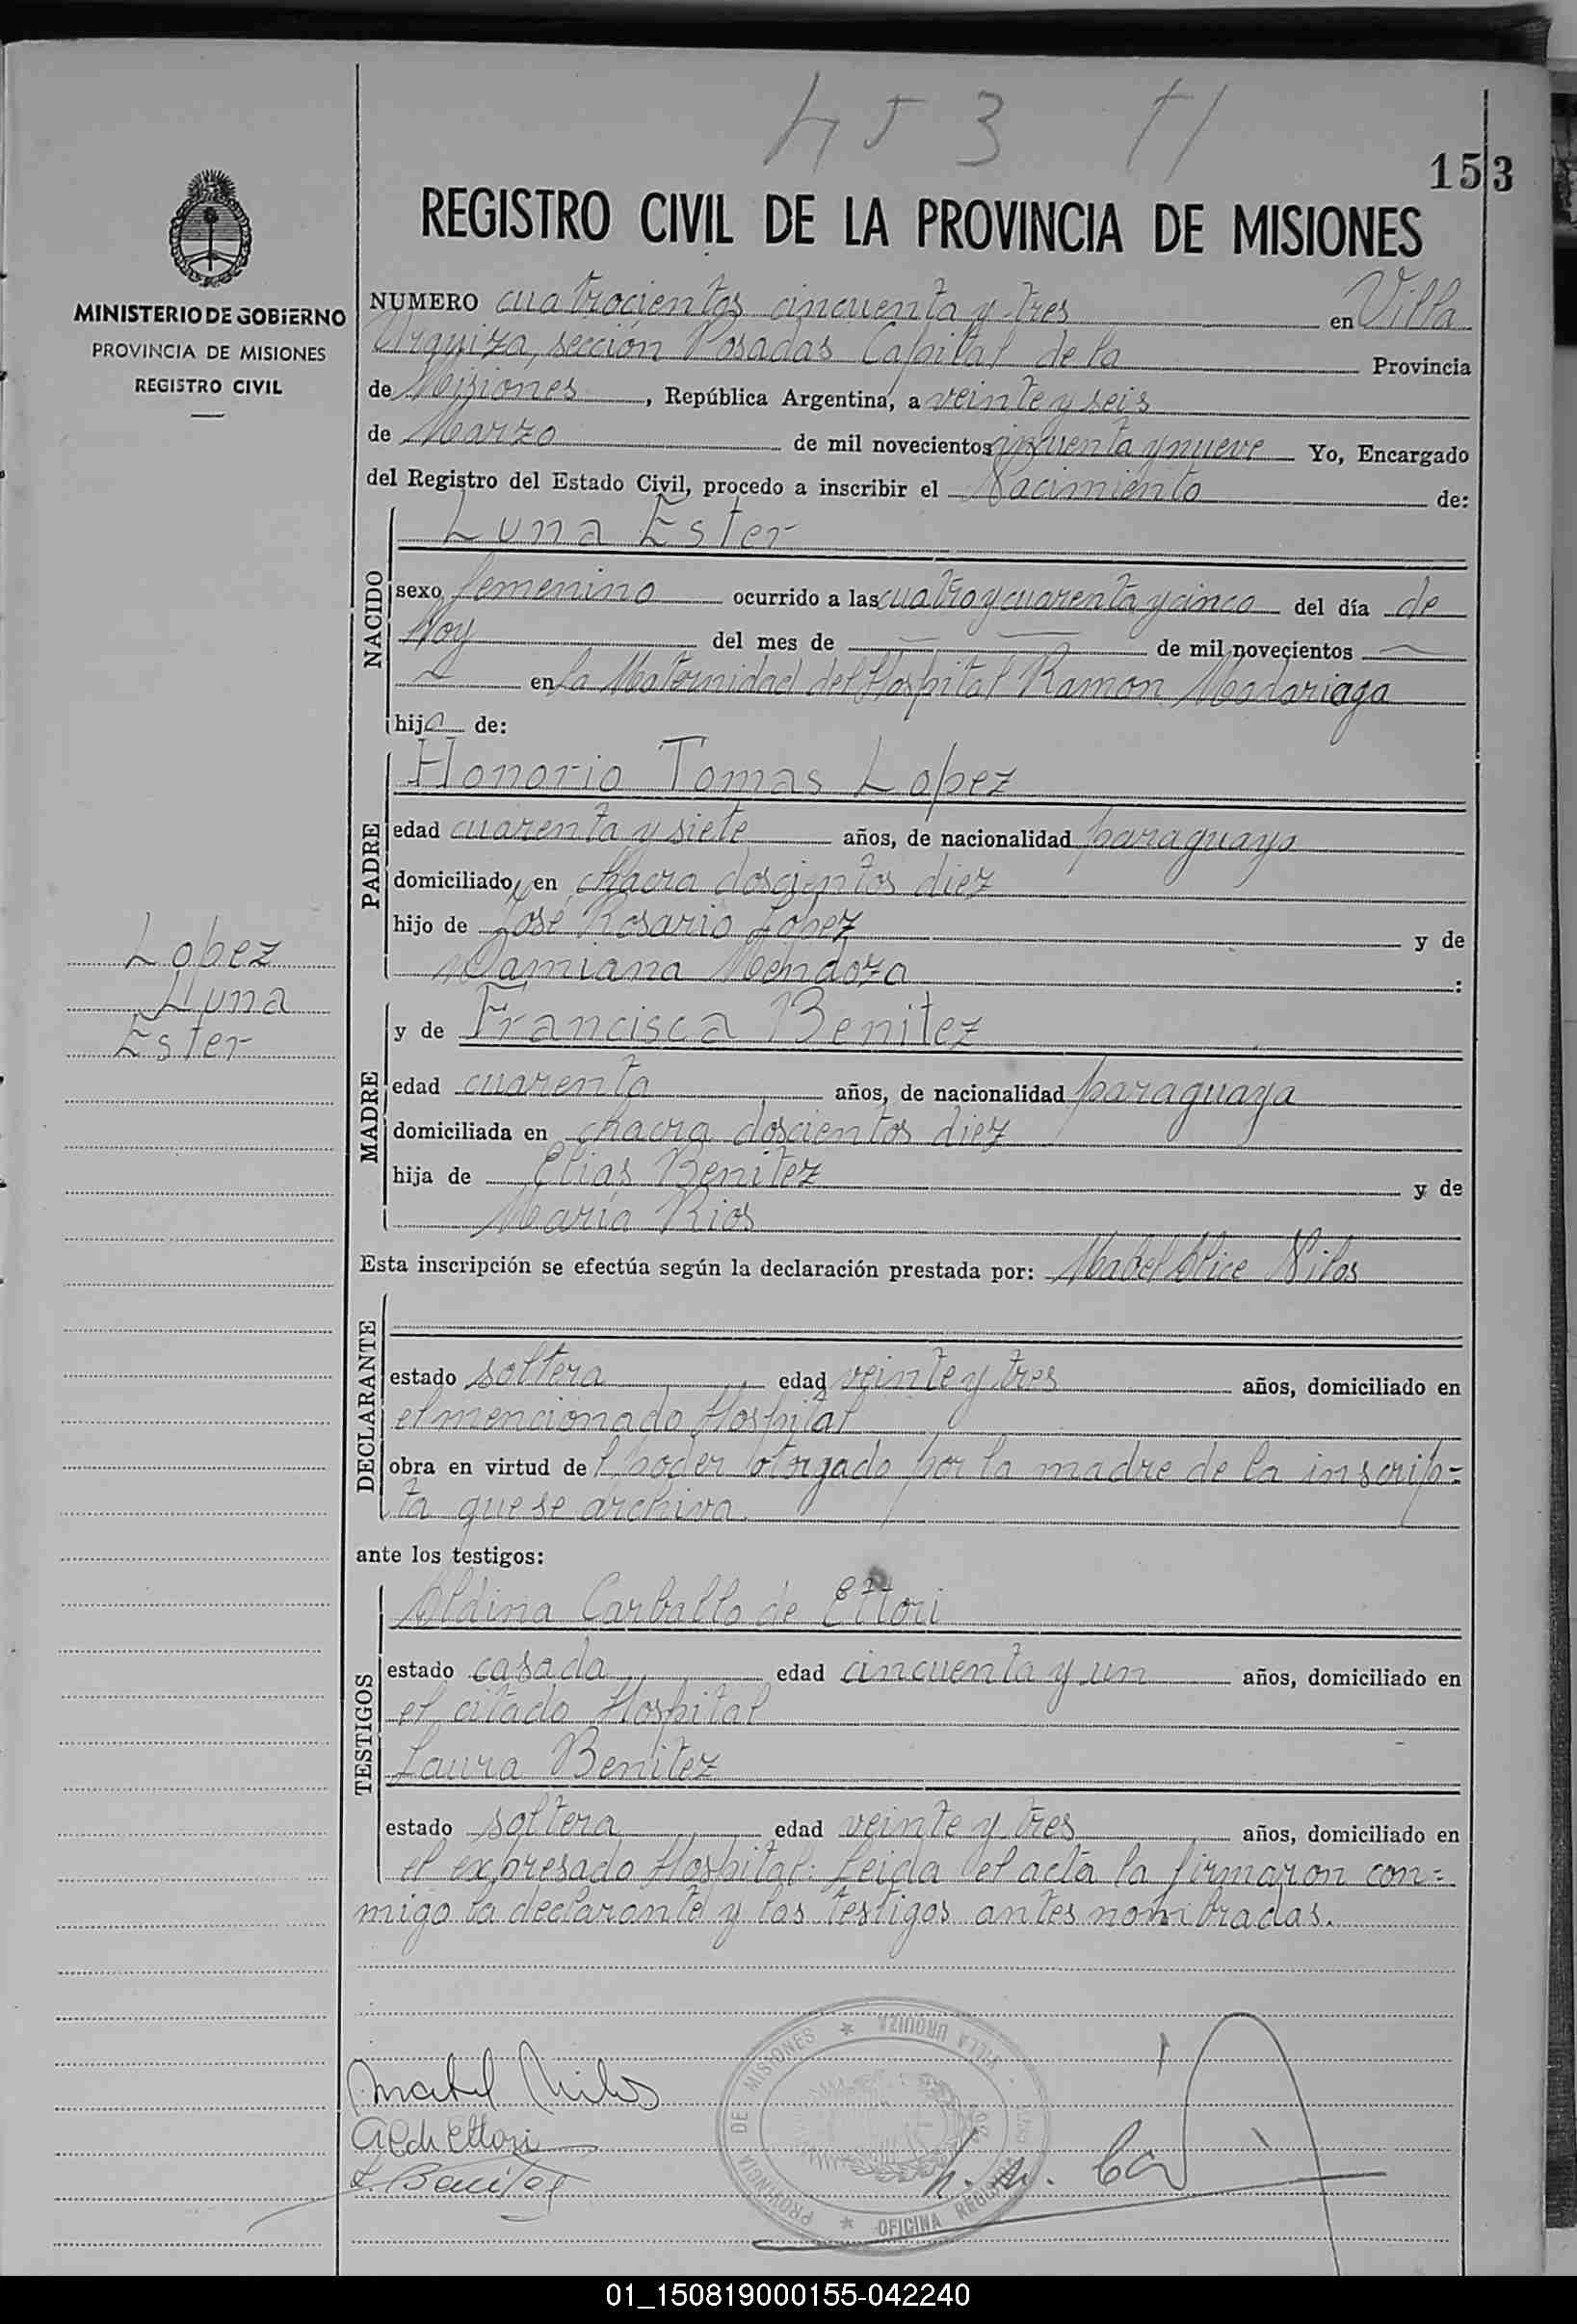 453 H
153
REGISTRO CIVIL DE LA PROVINCIA DE MISIONES
MINISTERIO DE GOBIERNO
PROVINCIA DE MISIONES
REGISTRO CIVIL
NUMERO cuatrocientos cincuenta y tres en Villa
Urquiza, sección Posadas Capital de la Provincia
de Misiones, República Argentina, a veinte y seis
de Marzo de mil novecientos cincuenta y nueve Yo, Encargado
del Registro del Estado Civil, procedo a inscribir el Nacimiento de:
NACIDO
Luna Ester
sexo femenino ocurrido a las cuatro y cuarenta y cinco del día de
hoy del mes de — — de mil novecientos —
— en la Maternidad del Hospital Ramon Madariaga
hija de:
PADRE
Honorio Tomas Lopez
edad cuarenta y siete años, de nacionalidad paraguaya
domiciliado en chacra doscientos diez
hijo de José Rosario Lopez y de
Damiana Mendoza :
Lopez
Luna
Ester
MADRE
y de Francisca Benitez
edad cuarenta años, de nacionalidad paraguaya
domiciliada en chacra doscientos diez
hija de Elias Benitez y de
María Rios
Esta inscripción se efectúa según la declaración prestada por: Mabel Alice Nilos
DECLARANTE
estado soltera edad veinte y tres años, domiciliado en
el mencionado Hospital
obra en virtud del poder otorgado por la madre de la inscrip=
ta que se archiva.
ante los testigos:
TESTIGOS
Aldina Carballo de Ettori
estado casada edad cincuenta y un años, domiciliado en
el citado Hospital
Laura Benitez
estado soltera edad veinte y tres años, domiciliado en
el expresado Hospital. Leida el acta la firmaron con=
migo la declarante y las testigos antes nombradas.
Mabel Nilos
A C de Ettori
L. Benitez
PROVINCIA DE MISIONES * VILLA URQUIZA
OFICINA
01_150819000155-042240